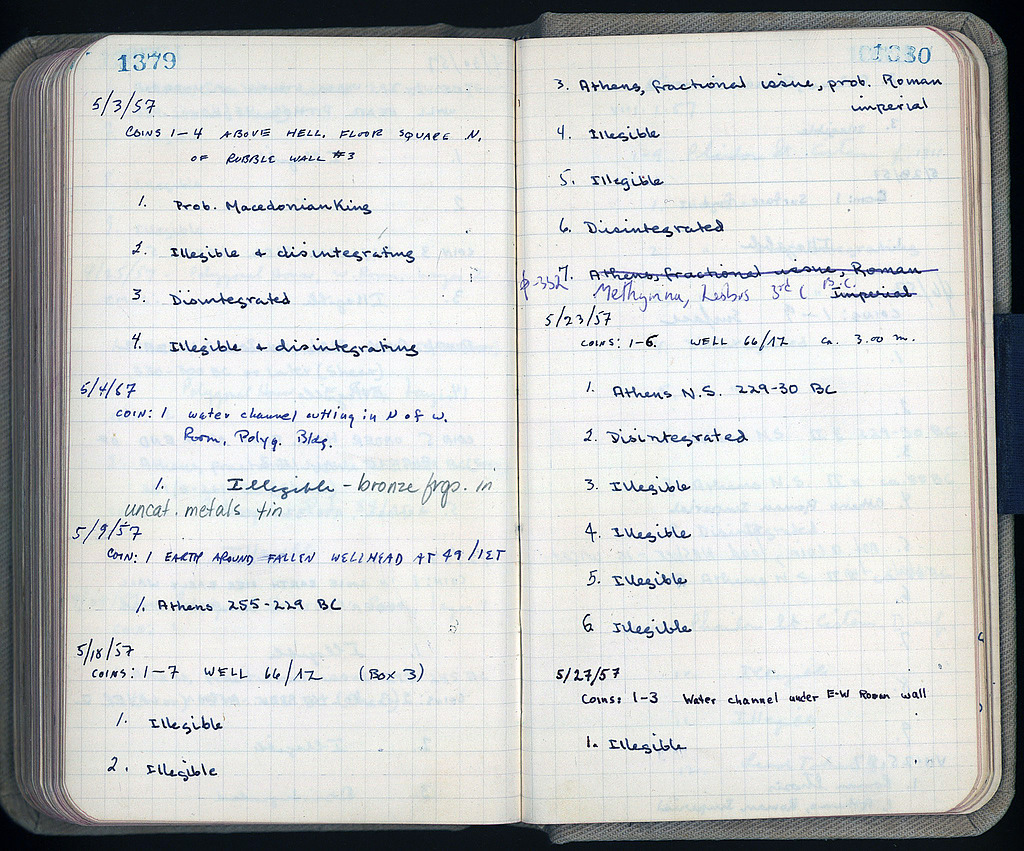 1379
5/3/57
COINS 1-4 ABOVE HELL. FLOOR SQUARE N.
OF RUBBLE WALL #3
1. Prob. Macedonian King
2. Illegible + disintegrating
3. Disintegrated
4. Illegible + disintegrating
5/4/67
COIN: 1 water channel cutting in N of W.
Room, Polyg. Bldg.
1. Illegible - bronze frgs. in
uncat. metals tin
5/9/57
COIN: 1 EARTH AROUND FALLEN WELLHEAD AT 49/IET
1. Athens 255-229 BC
5/18/57
COINS: 1-7 WELL 66/IZ (BOX 3)
1. Illegible
2. Illegible
1380
3. Athens, fractional issue, prob. Roman
imperial
4. Illegible
5. Illegible
6. Disintegrated
7. Athens, fractional issue, Roman
Φ-352 Methymna, Lesbos 3rd C B.C. Imperial
5/23/57
COINS: 1-6. WELL 66/IZ ca. 3.00 m.
1. Athens N.S. 229-30 BC
2. Disintegrated
3. Illegible
4. Illegible
5. Illegible
6. Illegible
5/27/57
Coins: 1-3 Water channel under E-W Roman wall
1. Illegible